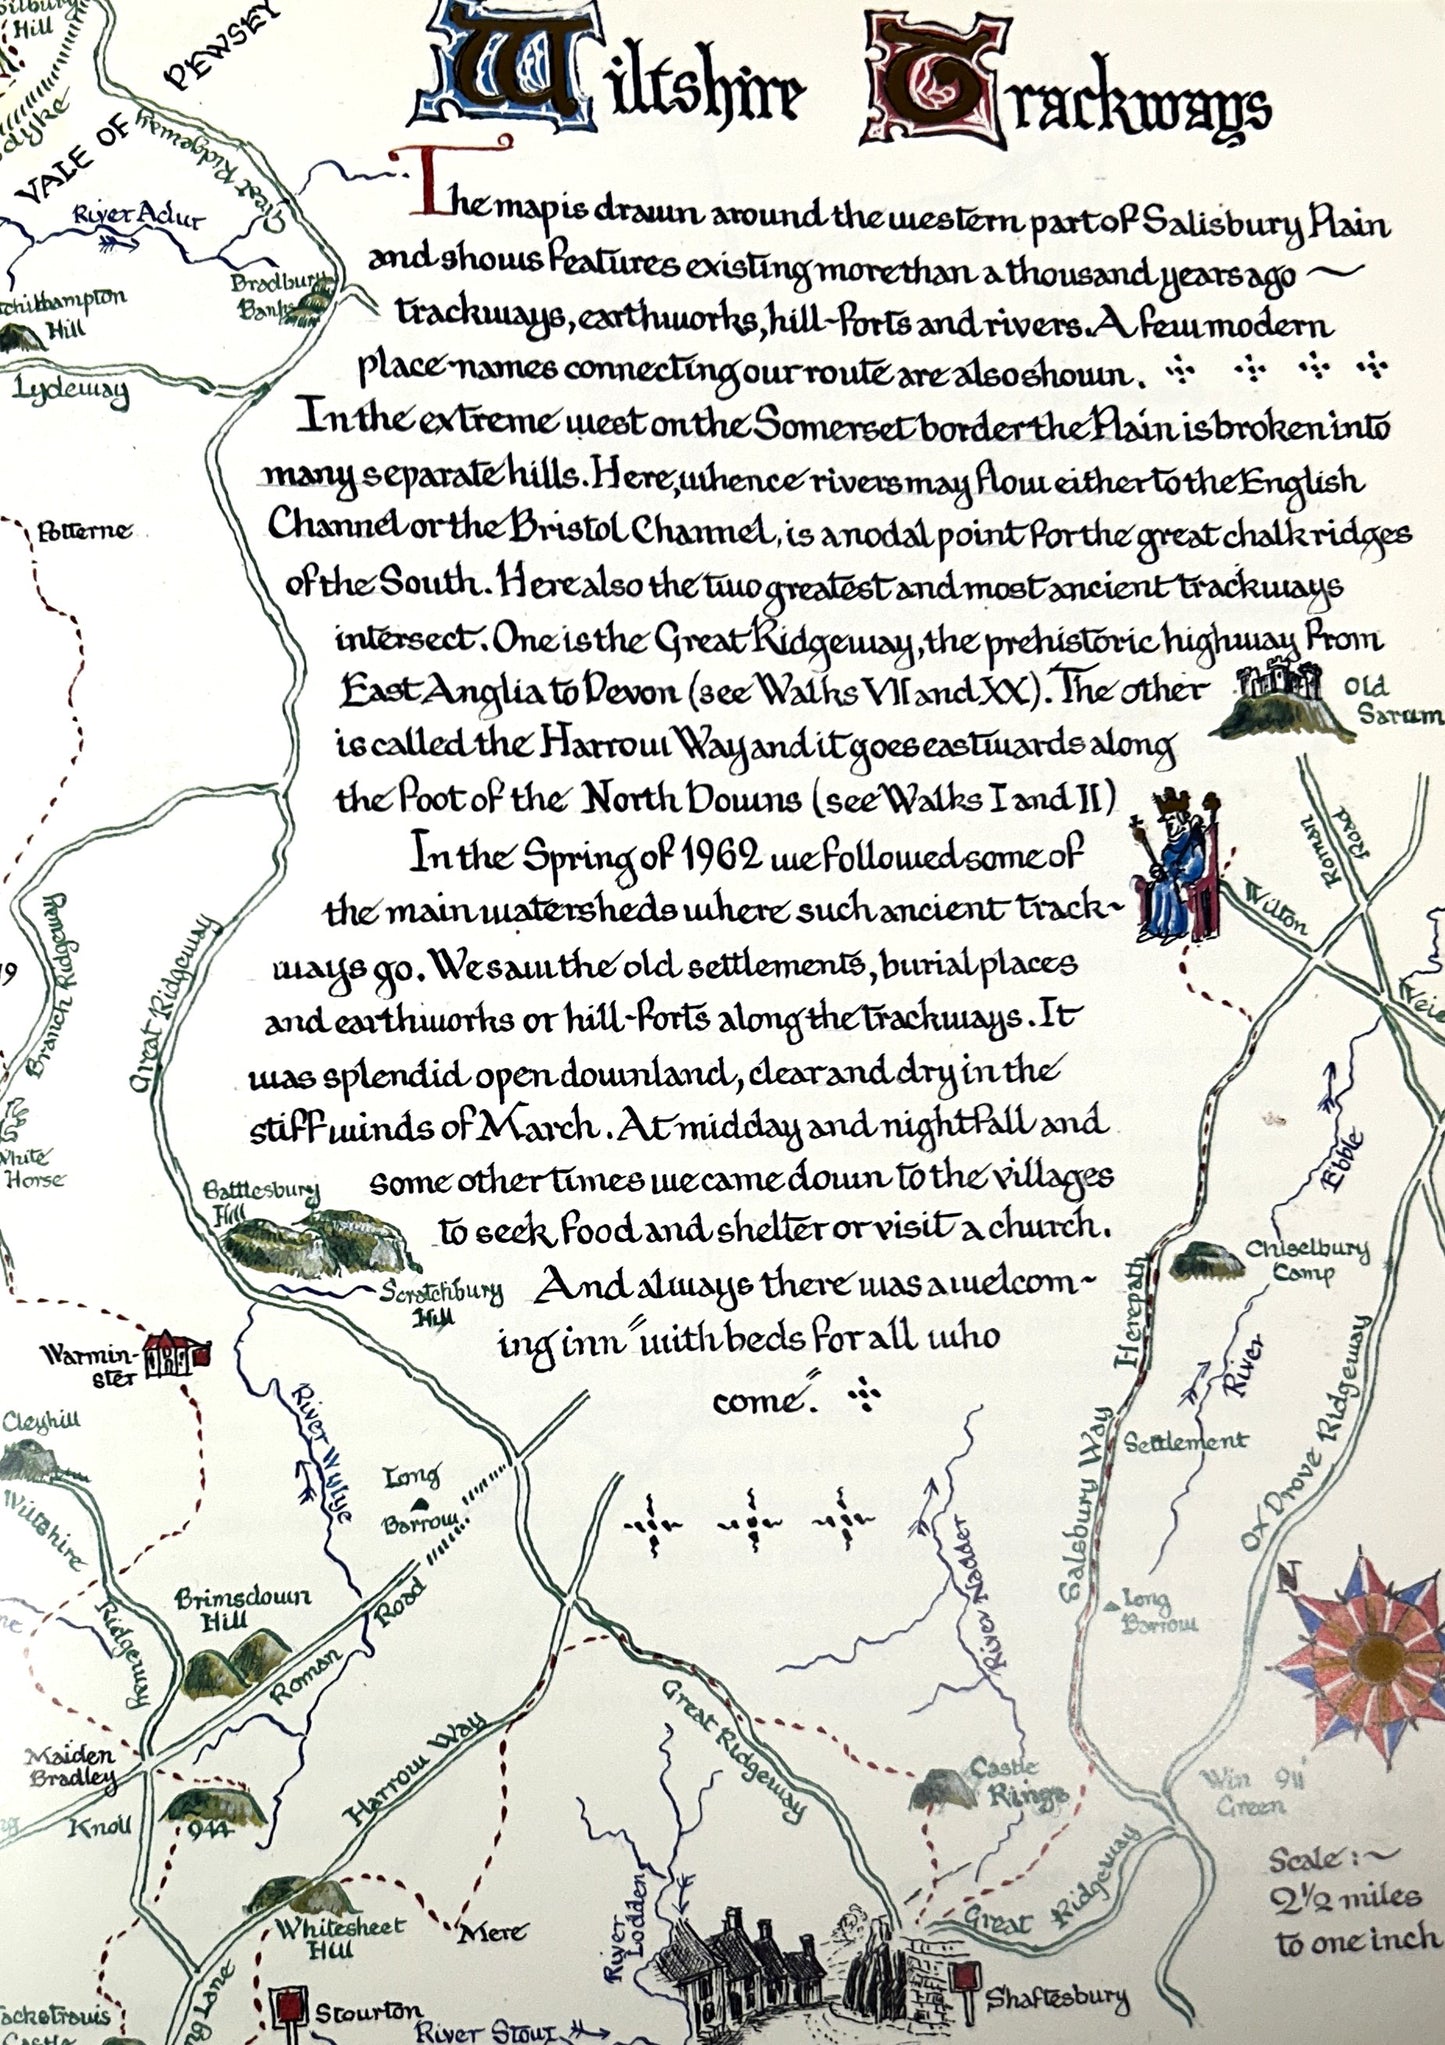 Wiltshire Trackways
Hill
dyke
VALE OF PEWSEY
Great Ridgeway
River Adur
Bradbury
Banks
Hill
Lydeway
The map is drawn around the western part of Salisbury Plain
and shows features existing more than a thousand years ago ~
trackways, earthworks, hill-forts and rivers. A few modern
place-names connecting our route are also shown.
In the extreme west on the Somerset border the Plain is broken into
many separate hills. Here, whence rivers may flow either to the English
Channel or the Bristol Channel, is a nodal point for the great chalk ridges
of the South. Here also the two greatest and most ancient trackways
intersect. One is the Great Ridgeway, the prehistoric highway from
East Anglia to Devon (see Walks VII and XX). The other
is called the Harrow Way and it goes eastwards along
the foot of the North Downs (see Walks I and II)
In the Spring of 1962 we followed some of
the main watersheds where such ancient track-
ways go. We saw the old settlements, burial places
and earthworks or hill-forts along the trackways. It
was splendid open downland, clear and dry in the
stiff winds of March. At midday and nightfall and
some other times we came down to the villages
to seek food and shelter or visit a church.
And always there was a welcom-
ing inn "with beds for all who
come."
Potterne
Old
Sarum
Roman
Road
Wilton
Great Ridgeway
Branch Ridgeway
White
Horse
Ebble
Battlesbury
Hill
Scratchbury
Hill
Chiselbury
Camp
Herepath
River
Warmin-
ster
Cleyhill
River Wylye
Long
Barrow
Settlement
Salsbury Way
Ox Drove Ridgeway
Wiltshire
Ridgeway
Brimsdown
Hill
Roman
Road
River Nadder
Long
Barrow
N
Maiden
Bradley
Knoll
944
Harrow Way
Great Ridgeway
Castle
Rings
Win 911
Green
Scale :~
2½ miles
to one inch
Whitesheet
Hill
Mere
River
Lodden
Great Ridgeway
Stourton
River Stour
Shaftesbury
Lane
Castle